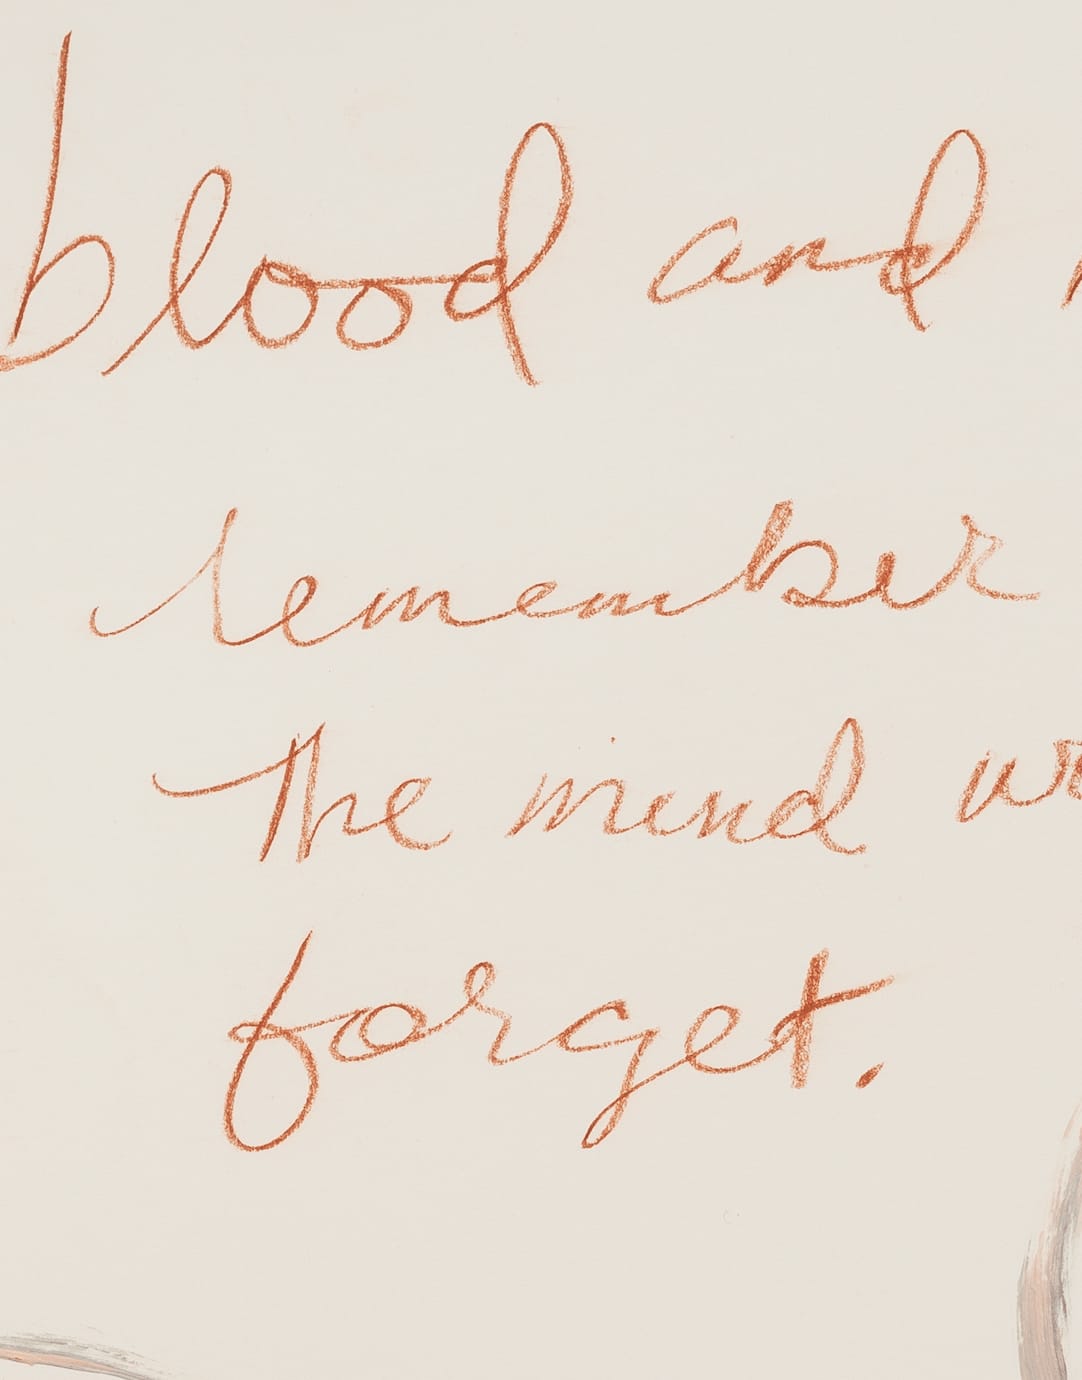 blood and
remember
The mind
forget.